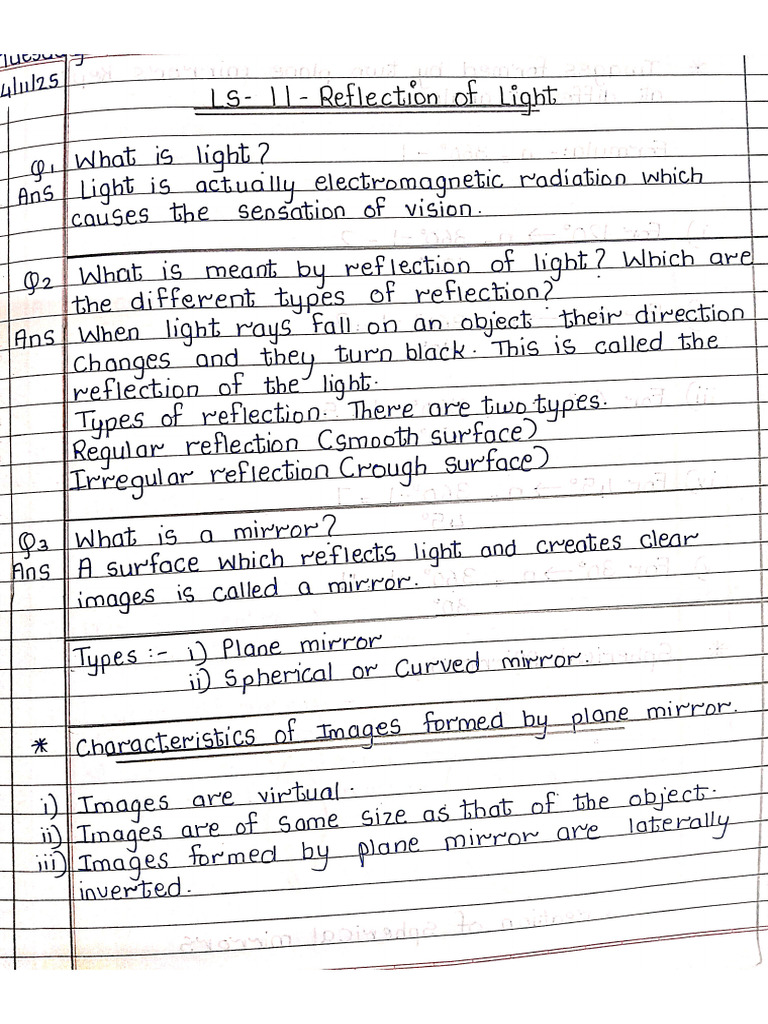 Tuesday
4/11/25
LS- 11 - Reflection of Light
Q1 What is light?
Ans Light is actually electromagnetic radiation which
causes the sensation of vision.
Q2 What is meant by reflection of light? Which are
the different types of reflection?
Ans When light rays fall on an object their direction
changes and they turn black. This is called the
reflection of the light.
Types of reflection. There are two types.
Regular reflection (smooth surface)
Irregular reflection (rough surface)
Q3 What is a mirror?
Ans A surface which reflects light and creates clear
images is called a mirror.
Types :- i) Plane mirror
ii) Spherical or Curved mirror.
* Characteristics of Images formed by plane mirror.
i) Images are virtual.
ii) Images are of same size as that of the object.
iii) Images formed by plane mirror are laterally
inverted.